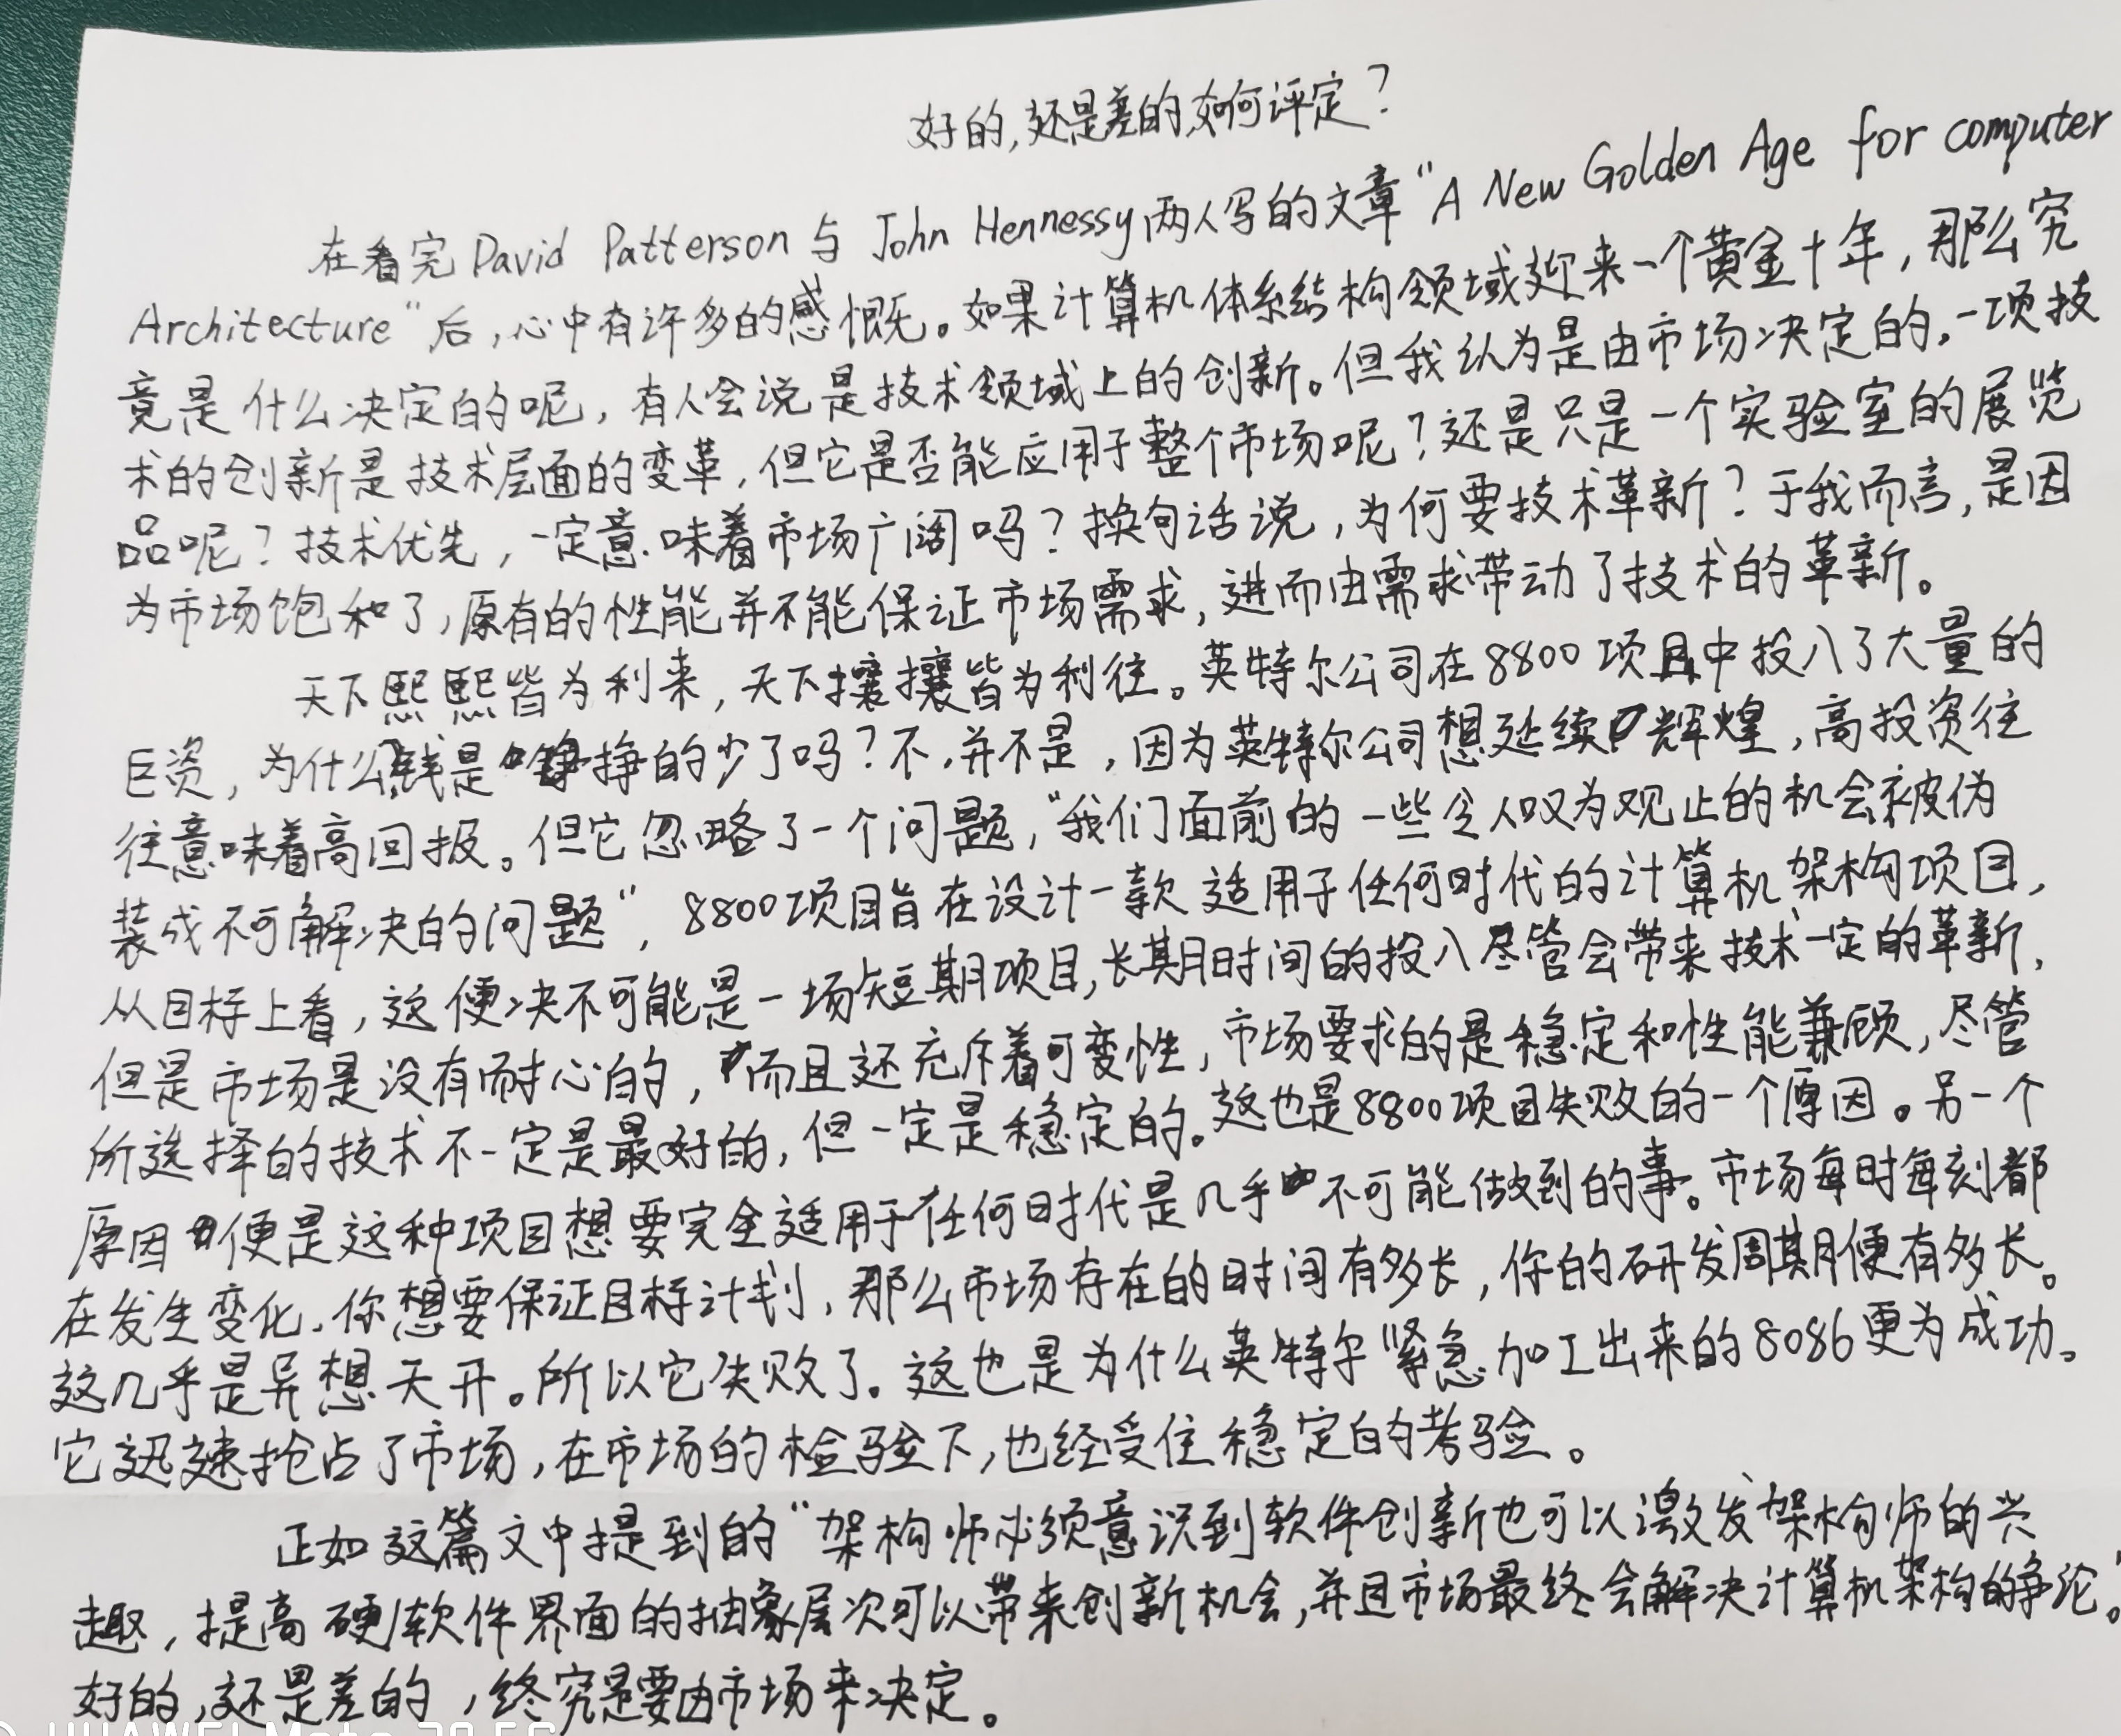 好的,还是差的,如何评定?
在看完David Patterson与John Hennessy两人写的文章“A New Golden Age for computer
Architecture”后,心中有许多的感慨。如果计算机体系结构领域迎来一个黄金十年,那么究
竟是什么决定的呢,有人会说是技术领域上的创新。但我认为是由市场决定的,一项技
术的创新是技术层面的变革,但它是否能应用于整个市场呢?还是只是一个实验室的展览
品呢?技术优先,一定意味着市场广阔吗?换句话说,为何要技术革新?于我而言,是因
为市场饱和了,原有的性能并不能保证市场需求,进而由需求带动了技术的革新。
天下熙熙皆为利来,天下攘攘皆为利往。英特尔公司在8800项目中投入了大量的
巨资,为什么,钱是挣的少了吗?不,并不是,因为英特尔公司想延续辉煌,高投资往
往意味着高回报。但它忽略了一个问题,“我们面前的一些令人叹为观止的机会被伪
装成不可解决的问题”,8800项目旨在设计一款适用于任何时代的计算机架构项目,
从目标上看,这便决不可能是一场短期项目,长期时间的投入尽管会带来技术一定的革新,
但是市场是没有耐心的,而且还充斥着可变性,市场要求的是稳定和性能兼顾,尽管
所选择的技术不一定是最好的,但一定是稳定的。这也是8800项目失败的一个原因。另一个
原因便是这种项目想要完全适用于任何时代是几乎不可能做到的事。市场每时每刻都
在发生变化,你想要保证目标计划,那么市场存在的时间有多长,你的研发周期便有多长。
这几乎是异想天开。所以它失败了。这也是为什么英特尔紧急加工出来的8086更为成功。
它迅速抢占了市场,在市场的检验下,也经受住稳定的考验。
正如这篇文中提到的“架构师必须意识到软件创新也可以激发架构师的兴
趣,提高硬/软件界面的抽象层次可以带来创新机会,并且市场最终会解决计算机架构的争论。”
好的,还是差的,终究是要由市场来决定。